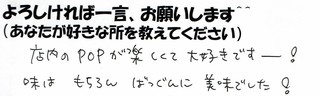 よろしければ一言、お願いします^^
(あなたが好きな所を教えてください)
店内のPOPが楽しくて大好きですー!
味はもちろんばつぐんに美味でした!